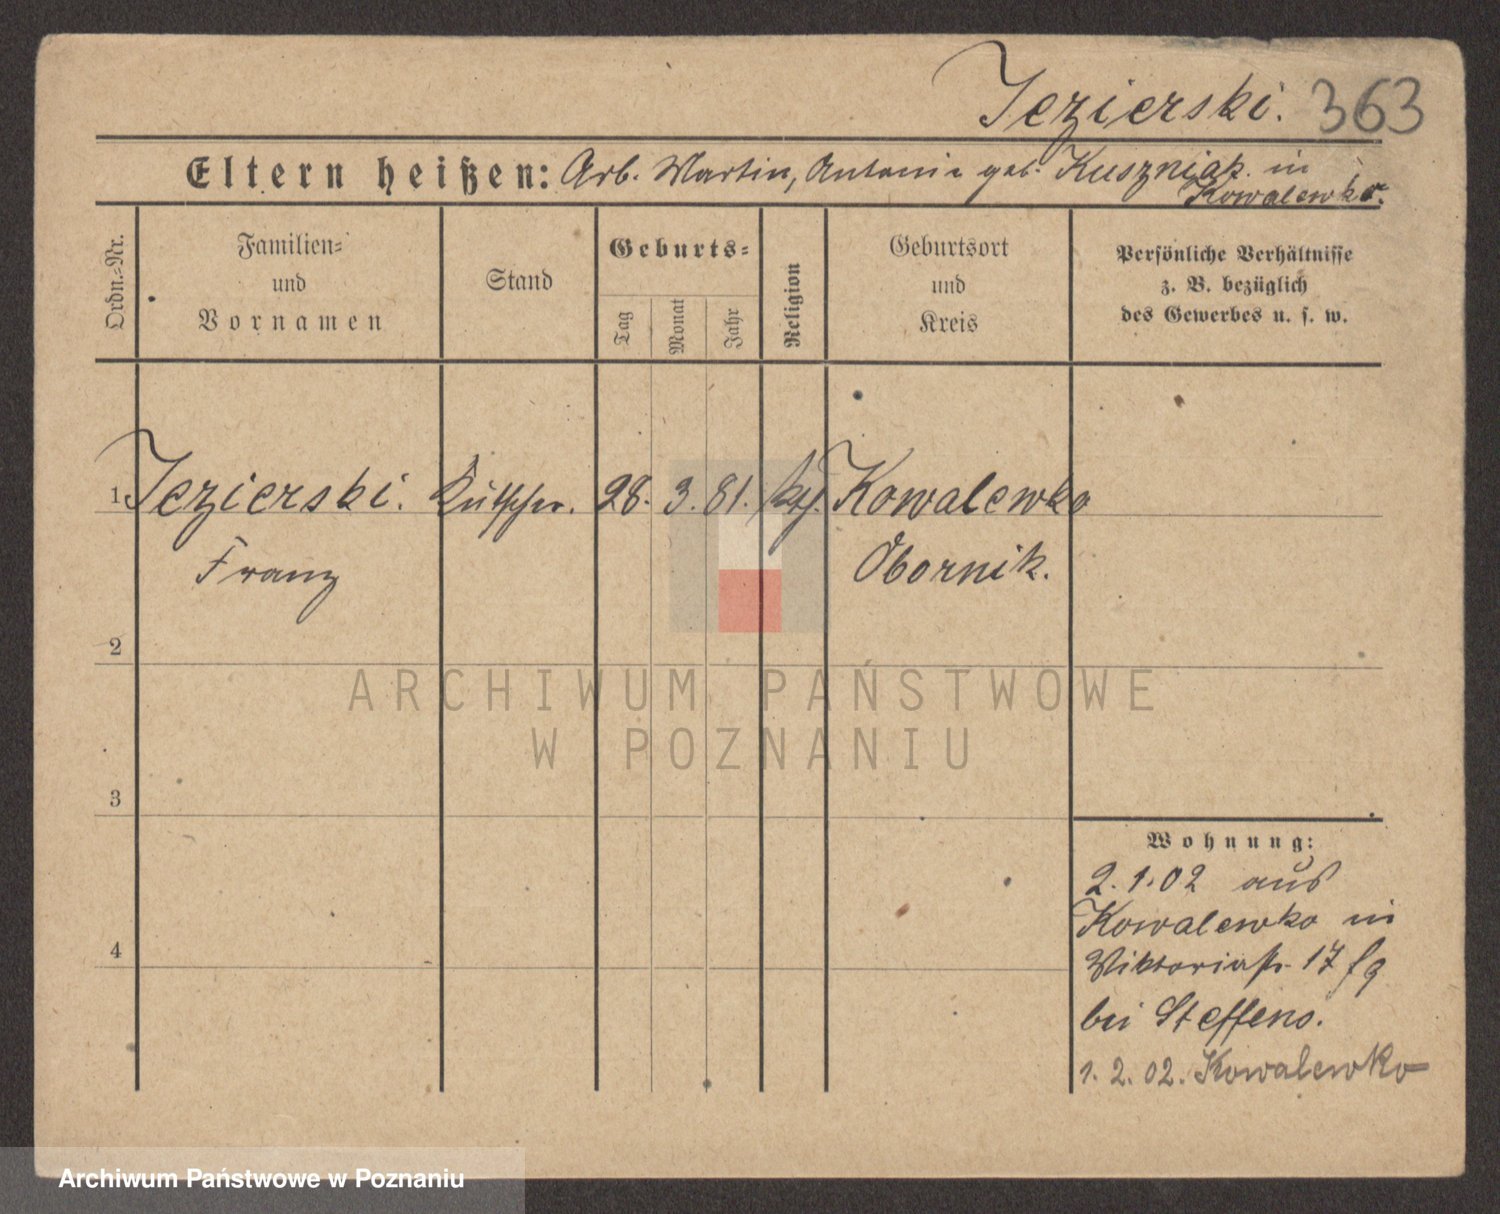 Jezierski. 363
Eltern heißen: Arb. Martin, Antonie geb. Kuszniak in
Kowalewko.
Ordn.-Nr.
Familien-
und
Vornamen
Stand
Geburts-
Tag
Monat
Jahr
Religion
Geburtsort
und
Kreis
Persönliche Verhältnisse
z. B. bezüglich
des Gewerbes u. s. w.
1 Jezierski. Kutscher. 28. 3. 81. kth. Kowalewko
Franz Obornik.
2
3
4
Wohnung:
2.1.02 aus
Kowalewko in
Viktoriastr. 17
bei Steffens.
1. 2. 02. Kowalewko
ARCHIWUM PAŃSTWOWE
W POZNANIU
Archiwum Państwowe w Poznaniu